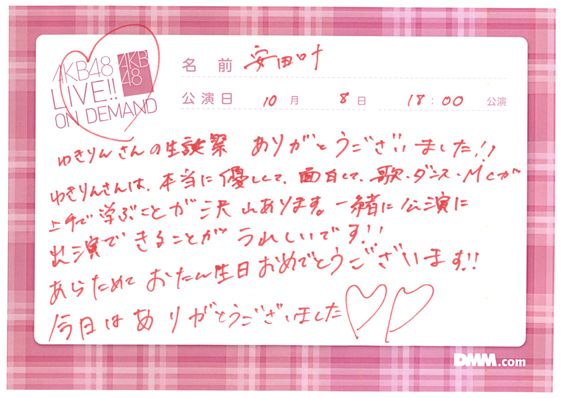 AKB48
LIVE!!
ON DEMAND
AKB
48
名 前 安田叶
公演日 10 月 8 日 18:00 公演
ゆきりんさんの生誕祭 ありがとうございました!!
ゆきりんさんは、本当に優しくて、面白くて、歌・ダンス・MCが
上手で学ぶことが沢山あります。一緒に公演に
出演できることがうれしいです!!
あらためて おたん生日おめでとうございます!!
今日はありがとうございました♡♡
DMM.com